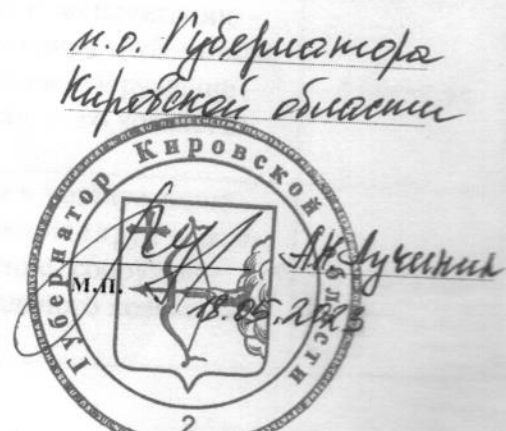 и.о. Губернатора
Кировской области
Губернатор Кировской области
А.А. Лучинин
М.П.
18.05.2023
2